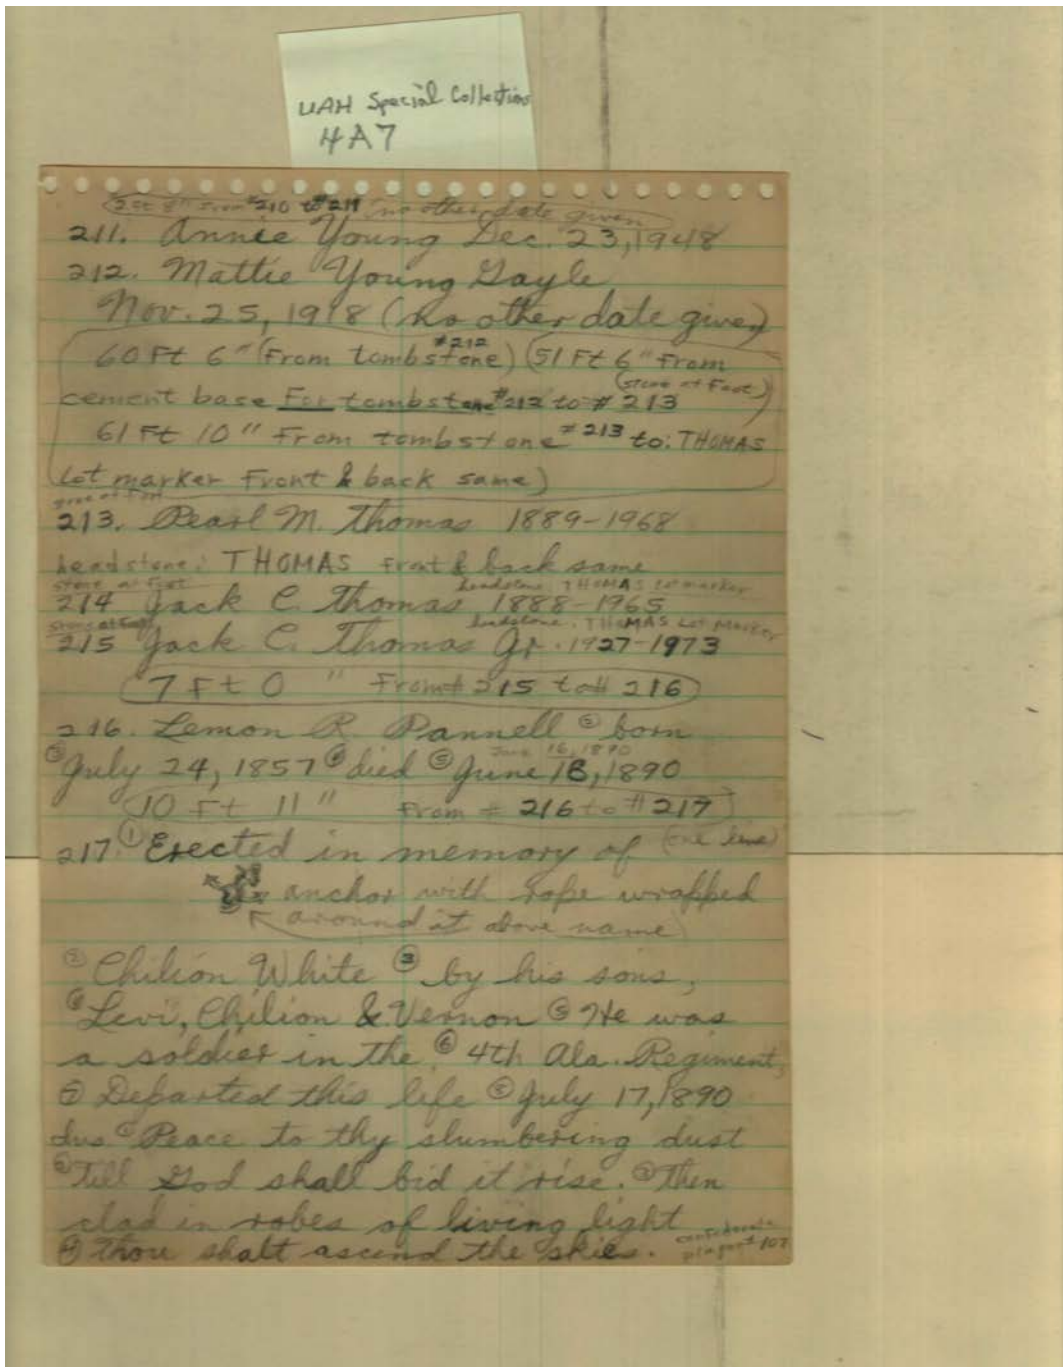 UAH Special Collections
4A7
2 ft 8" From #210 to #211 (no other date given)
211. Annie Young Dec. 23, 1948
212. Mattie Young Gayle
Nov. 25, 1918 (no other date given)
#212
60 Ft 6" (From tombstone) (51 Ft 6" From
(stone at Foot)
cement base For tombstone #212 to # 213
61 Ft 10" From tombstone #213 to: THOMAS
Lot marker Front & back same)
stone at Foot
213. Pearl M. Thomas 1889-1968
headstone: THOMAS Front & back same
stone at Foot headstone: THOMAS Lot marker
214 Jack C. Thomas 1888-1965
stone at Foot headstone: THOMAS Lot Marker
215 Jack C. Thomas Jr. 1927-1973
7 Ft 0 " From # 215 to # 216
216. Lemon R. Pannell ② born
June 16, 1890
③ July 24, 1857 ④ died ⑤ June 16, 1890
10 Ft 11" From # 216 to # 217
217. ① Erected in memory of (one line)
anchor with rope wrapped
around it above name)
② Chilion White ③ by his sons,
④ Levi, Chilion & Vernon ⑤ He was
a soldier in the ⑥ 4th Ala. Regiment,
⑦ Departed this life ⑧ July 17, 1890
① Peace to thy slumbering dust
② Till God shall bid it rise. ③ Then
clad in robes of living light
④ Thou shalt ascend the skies.
107